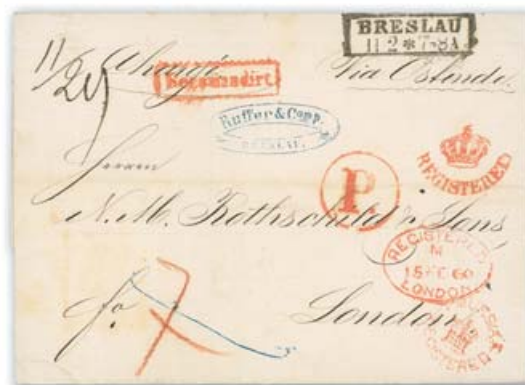 BRESLAU
11 2 * 7-8A.
11/2
Recomandirt.
Via Ostende.
Ruffer & Comp.
BRESLAU.
REGISTERED
Herrn
P
N. M. Rothschild & Sons
REGISTERED
M
15 FE 60
LONDON
fo
7
London
REGISTERED